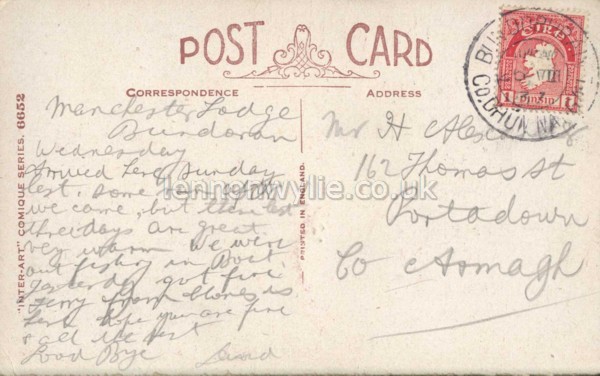 POST CARD
CORRESPONDENCE
ADDRESS
"INTER-ART" COMIQUE SERIES. 6652
PRINTED IN ENGLAND.
Manchester Lodge
Bundoran
Wednesday
arrived here Sunday
last. some
we came, but these last
three days are great
very warm we were
out fishing in Boat
yesterday got five
Jerry from is
here hope you are fine
& all the rest
Good Bye
Mr H
162 Thomas St
Portadown
Co Armagh
ÉIRE
1 PINGIN 1
CO. DHUN NA
VIII
lennonwylie.co.uk